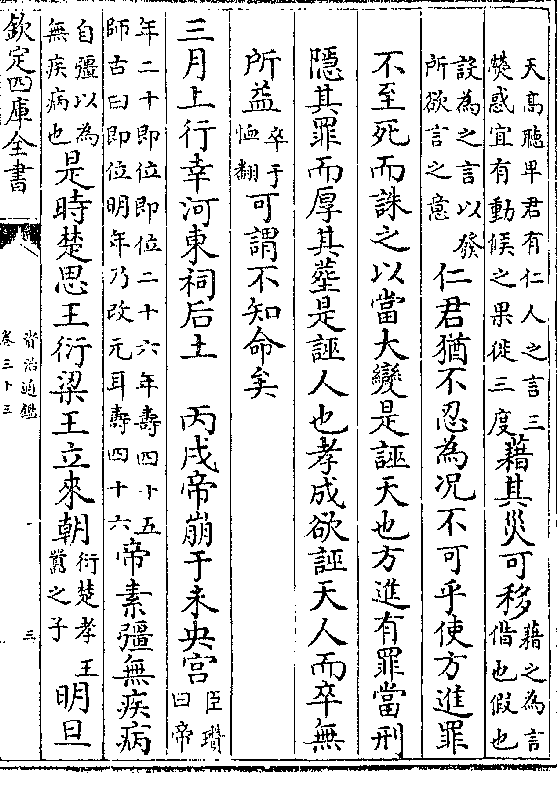 天高聽卑君有仁人之言三
熒惑宜有動候之果徙三度藉其災可移藉之為言
借也假也
設為之言以發
所欲言之意仁君猶不忍為况不可乎使方進罪
不至死而誅之以當大變是誣天也方進有罪當刑
隱其罪而厚其塟是誣人也孝成欲誣天人而卒無
所益卒于
恤翻可謂不知命矣
三月上行幸河東祠后土　丙戌帝崩于未央宮臣瓚
曰帝
年二十即位即位二十六年壽四十五
師古曰即位明年乃改元耳壽四十六帝素彊無疾病
自彊以為
無疾病也是時楚思王衍梁王立來朝衍楚孝王
囂之子明旦
欽定四庫全書
資治通鑑
卷三十三
三